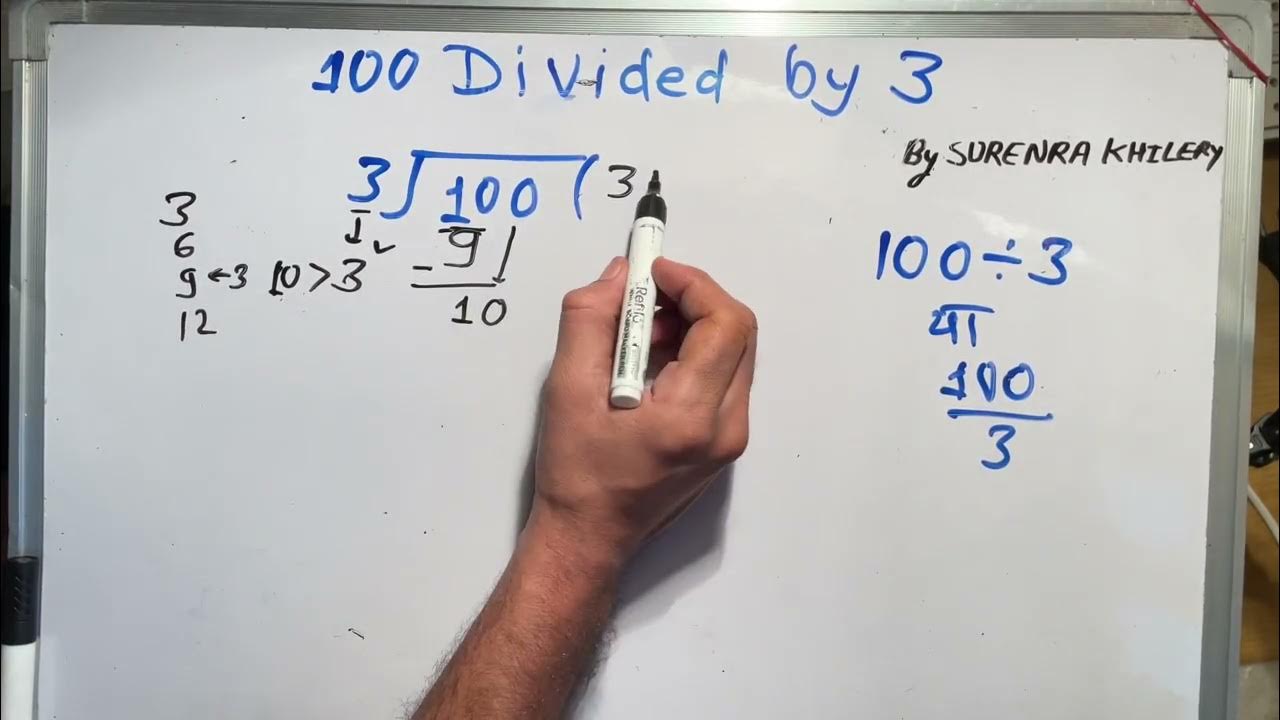 100 Divided by 3
By SURENRA KHILERY
3 100 ( 3
1 ✓
- 9
10
3
6
9 ← 3 10 > 3
12
100 ÷ 3
या
100
3
Refilo